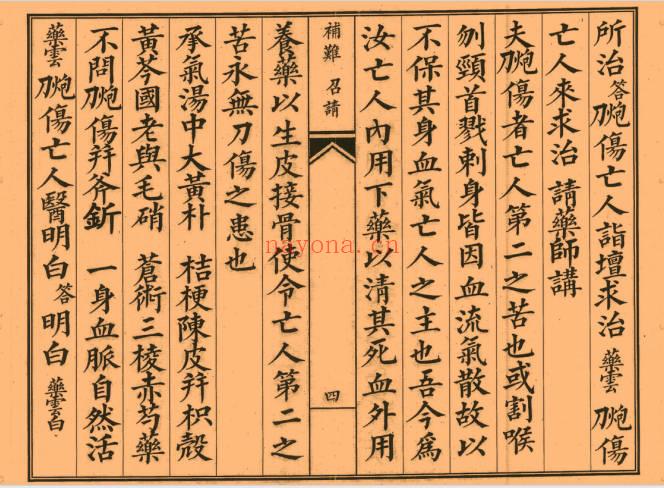 所治 答 刀炮傷亡人詣壇求治 藥雲 刀炮傷
亡人來求治 請藥師講
夫刀炮傷者亡人第二之苦也或割喉
刎頸首戮刺身皆因血流氣散故以
不保其身血氣亡人之主也吾今爲
汝亡人內用下藥以清其死血外用
補難 召請 四
養藥以生皮接骨使令亡人第二之
苦永無刀傷之患也
承氣湯中大黃朴 桔梗陳皮幷枳殼
黃芩國老與毛硝 蒼術三棱赤芍藥
不問刀炮傷幷斧釿 一身血脈自然活
藥雲 刀炮傷亡人醫明白 答 明白 藥雲白
nayona.cn